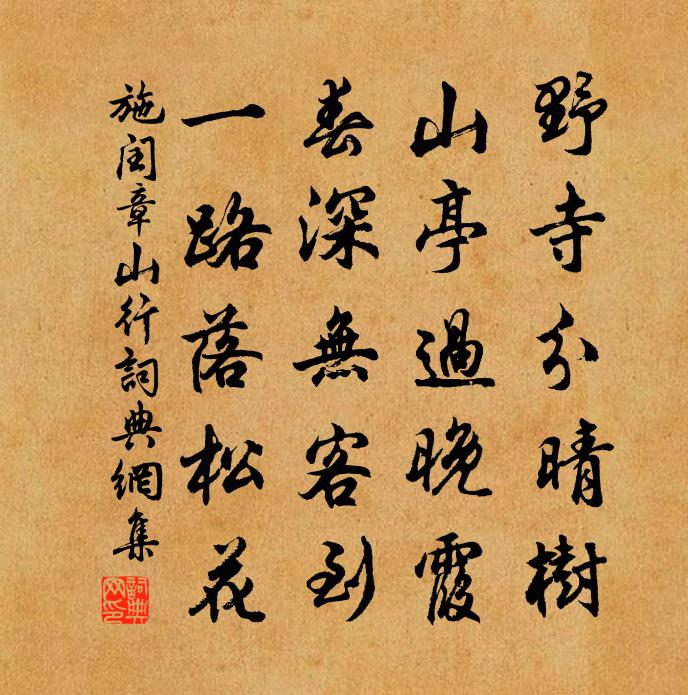 野寺分晴樹
山亭過晚霞
春深無客到
一路落松花
施閏章山行詞典網集
詞典網印